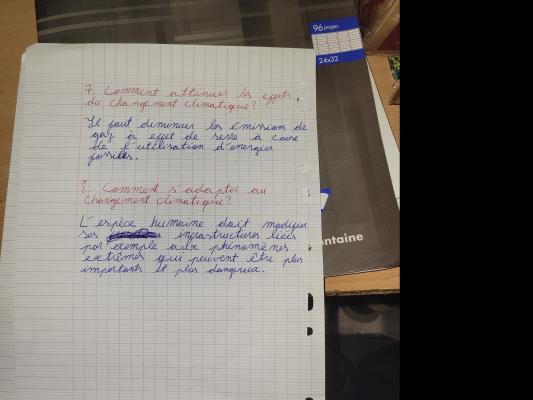 96 pages
24x32
7. Comment atténuer les effets
du changement climatique ?
Il faut diminuer les émissions de
gaz à effet de serre à cause
de l'utilisation d'énergies
fossiles.
8. Comment s'adapter au
changement climatique ?
L'espèce humaine doit modifier
ses infrastructures liées
par exemple aux phénomènes
extrêmes qui peuvent être plus
importants et plus dangereux.
ontaine